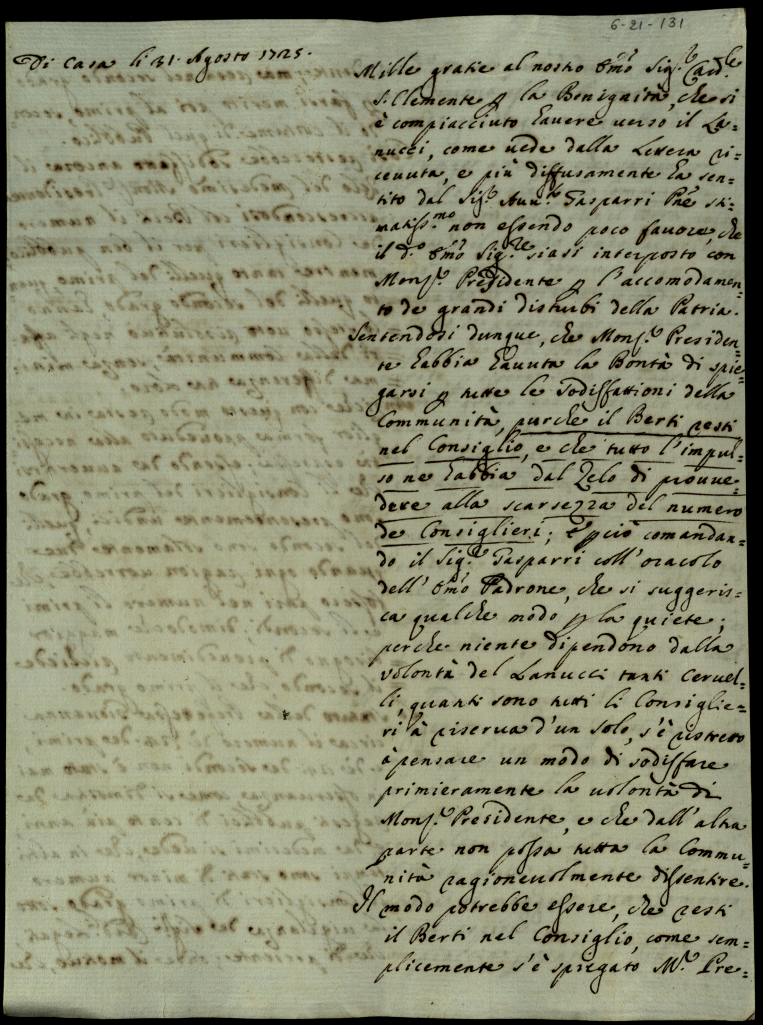 6-21-131
Di Casa li 31. Agosto 1725.
Mille gratie al nostro Emõ Sig.r Card.le
S. Clemente p la Benignità, che si
è compiacciuto hauere uerso il La=
nucci, come uede dalla Lettera ri=
ceuuta, e più diffusamente ha sen=
tito dal Sig.r Auu.o Gasparri Pñe sti=
matiss.mo non essendo poco fauore, che
il d.o Emõ Sig.re siasi interposto con
Mons.r Presidente p l'accomodamen=
to de grandi disturbi della Patria.
Sentendosi dunque, che Mons.r Presiden=
te habbia hauuta la Bontà di spie=
garsi p tutte le sodisfattioni della
Communità, purchè il Berti resti
nel Consiglio, e che tutto l'impul=
so ne habbia dal Zelo di prouue=
dere alla scarsezza del numero
de Consiglieri; e p ciò comandan=
do il Sig.r Gasparri coll'oracolo
dell'Emõ Padrone, che si suggeris=
ca qualche modo p la quiete;
perche niente dipendono dalla
uolontà del Lanucci tanti Ceruel=
li, quanti sono tutti li Consiglie=
ri à riserua d'un solo, s'è ristretto
à pensare un modo di sodisfare
primieramente la uolontà di
Mons.r Presidente, e che dall'altra
parte non possa tutta la Commu=
nità ragioneuolmente dissentire.
Il modo potrebbe essere, che resti
il Berti nel Consiglio, come sem=
plicemente s'è spiegato M.r Pre=